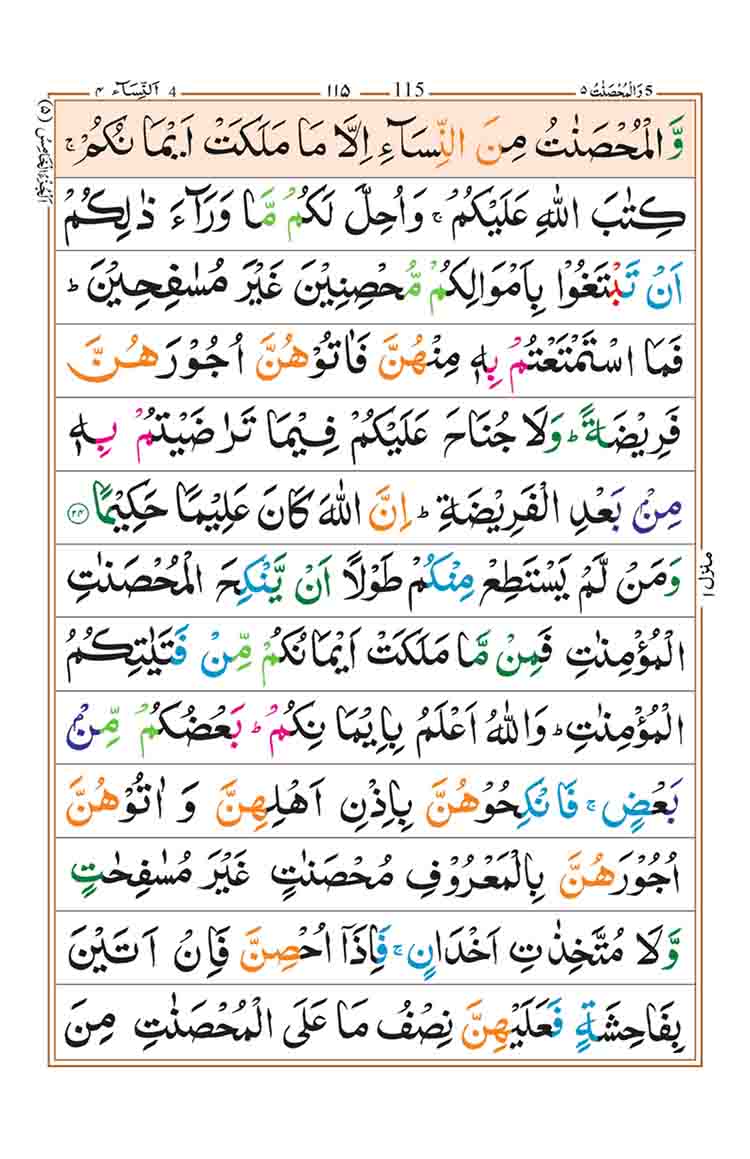 اَلنِّسَآء ۴ 4 ۱۱۵ 115 وَالْمُحْصَنٰتُ ۵ 5
اَلْجُزْءُ الْخَامِسُ (۵)
وَّ الْمُحْصَنٰتُ مِنَ النِّسَآءِ اِلَّا مَا مَلَكَتْ اَیْمَا نُكُمْ ۚ
كِتٰبَ اللّٰهِ عَلَیْكُمْ ۚ وَاُحِلَّ لَكُمْ مَّا وَرَآءَ ذٰلِكُمْ
اَنْ تَبْتَغُوْا بِاَمْوَالِكُمْ مُّحْصِنِیْنَ غَیْرَ مُسٰفِحِیْنَ ؕ
فَمَا اسْتَمْتَعْتُمْ بِهٖ مِنْهُنَّ فَاٰتُوْهُنَّ اُجُوْرَهُنَّ
فَرِیْضَةً ؕ وَلَا جُنَاحَ عَلَیْكُمْ فِیْمَا تَرٰضَیْتُمْ بِهٖ
مِنْۢ بَعْدِ الْفَرِیْضَةِ ؕ اِنَّ اللّٰهَ كَانَ عَلِیْمًا حَكِیْمًا ۲۴
وَمَنْ لَّمْ یَسْتَطِعْ مِنْكُمْ طَوْلًا اَنْ یَّنْكِحَ الْمُحْصَنٰتِ
الْمُؤْمِنٰتِ فَمِنْ مَّا مَلَكَتْ اَیْمَانُكُمْ مِّنْ فَتَیٰتِكُمُ
الْمُؤْمِنٰتِ ؕ وَاللّٰهُ اَعْلَمُ بِاِیْمَا نِكُمْ ؕ بَعْضُكُمْ مِّنْۢ
بَعْضٍ ۚ فَانْكِحُوْهُنَّ بِاِذْنِ اَهْلِهِنَّ وَ اٰتُوْهُنَّ
اُجُوْرَهُنَّ بِالْمَعْرُوْفِ مُحْصَنٰتٍ غَیْرَ مُسٰفِحٰتٍ
وَّلَا مُتَّخِذٰتِ اَخْدَانٍ ۚ فَاِذَاۤ اُحْصِنَّ فَاِنْ اَتَیْنَ
بِفَاحِشَةٍ فَعَلَیْهِنَّ نِصْفُ مَا عَلَى الْمُحْصَنٰتِ مِنَ
منزل ۱